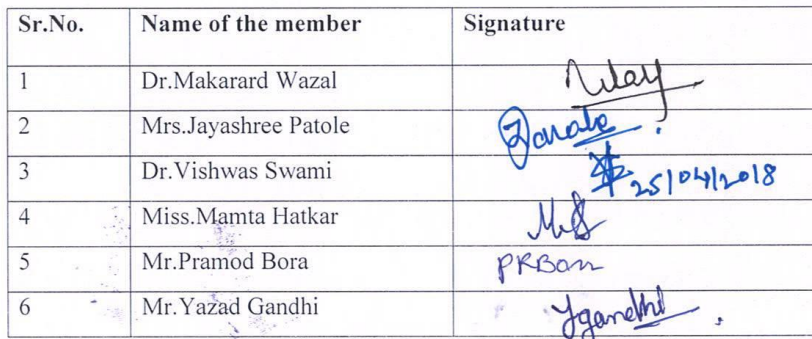 Sr.No. Name of the member Signature
1 Dr.Makarard Wazal
2 Mrs.Jayashree Patole
3 Dr.Vishwas Swami 25/04/2018
4 Miss.Mamta Hatkar
5 Mr.Pramod Bora PRBora
6 Mr.Yazad Gandhi Ygandhi